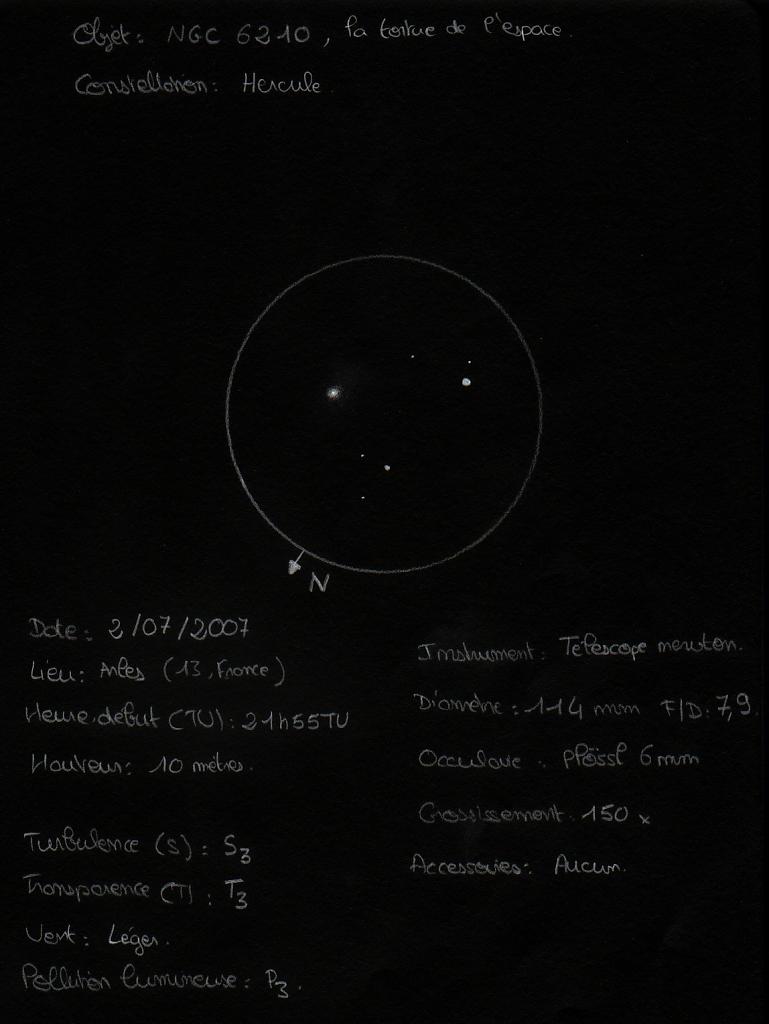 Objet: NGC 6210, la tortue de l'espace.
Constellation: Hercule.
N
Date: 2/07/2007
Lieu: Arles (13, France)
Heure début (TU): 21h55TU
Hauteur: 10 mètres.
Turbulence (S): S3
Transparence (T): T3
Vent: Léger.
Pollution lumineuse: P3.
Instrument: Télescope newton.
Diamètre: 114 mm F/D: 7,9
Occulaire: plössl 6mm
Grossissement: 150 x
Accessoires: Aucun.